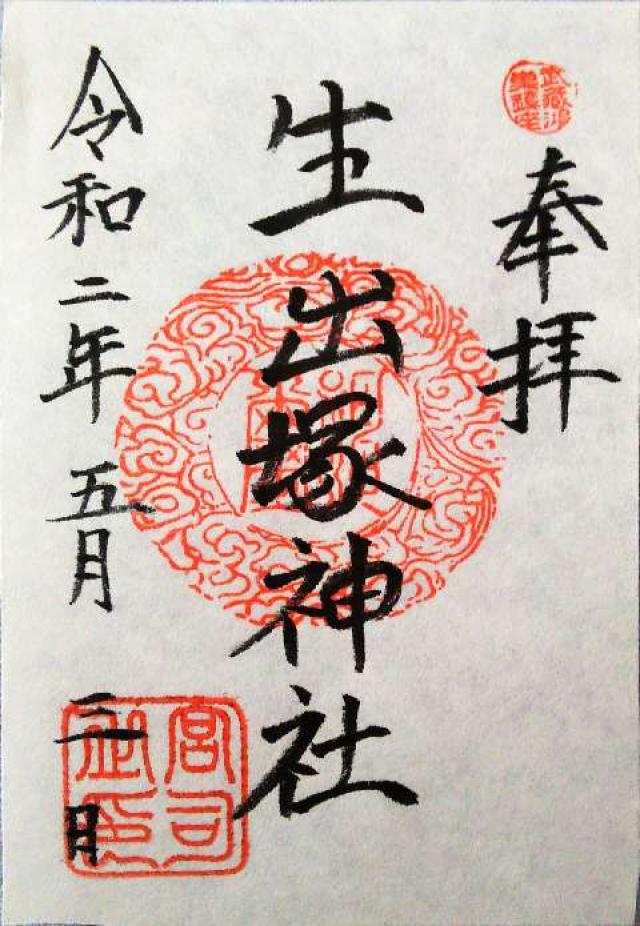 奉拝
生出塚神社
令和二年五月二日
宮司之印